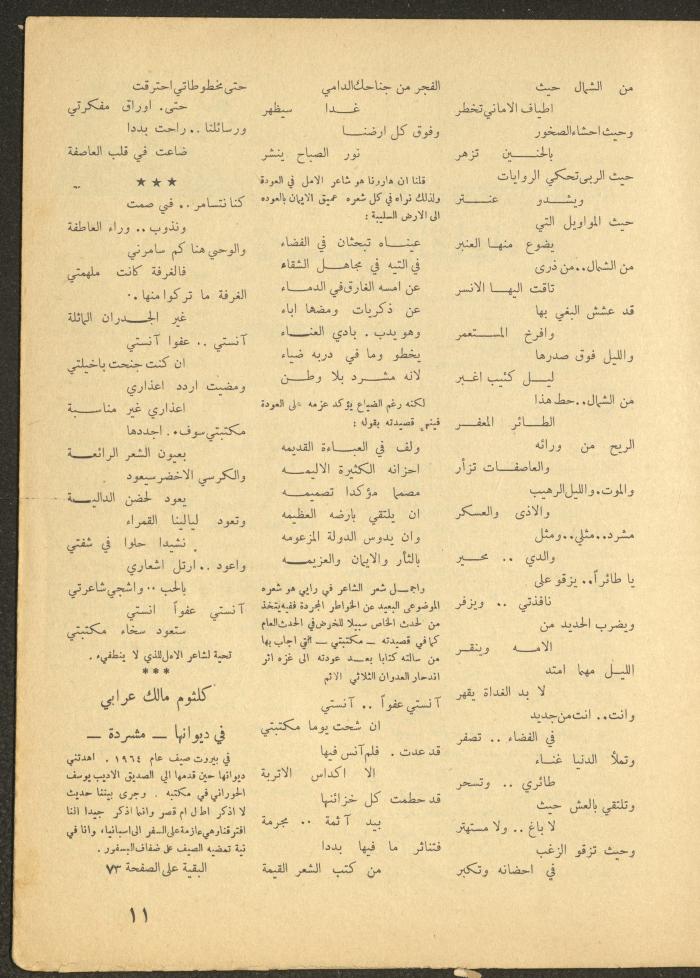 من الشمال حيث
اطياف الاماني تخطر
وحيث احشاء الصخور
بالحنين تزهر
حيث الربى تحكي الروايات
ويشدو عنتر
حيث المواويل التي
يضوع منها العنبر
من الشمال.. من ذرى
تاقت اليها الانسر
قد عشش البغي بها
وافرخ المستعمر
والليل فوق صدرها
ليل كئيب اغبر
من الشمال.. حط هذا
الطائر المعفر
الريح من ورائه
والعاصفات تزأر
والموت. والليل الرهيب
والاذى والعسكر
مشرد.. مثلي.. ومثل
والدي .. محبر
يا طائراً.. يزقو على
نافذتي .. ويزفر
ويضرب الحديد من
الامه وينقر
الليل مهما امتد
لا بد الغداة يقهر
وانت.. انت من جديد
في الفضاء .. تصفر
وتملأ الدنيا غناء
طائري .. وتسحر
وتلتقي بالعش حيث
لا باغ .. ولا مستهتر
وحيث تزقو الزغب
في احضانه وتكبر
الفجر من جناحك الدامي
غدا سيظهر
وفوق كل ارضنا
نور الصباح ينشر
قلنا ان هارونا هو شاعر الامل في العودة
ولذلك نراه في كل شعره عميق الايمان بالعوده
الى الارض السليبة :
عيناه تبحثان في الفضاء
في التيه في مجاهل الشقاء
عن امسه الغارق في الدماء
عن ذكريات ومضها اباء
وهو يدب. بادي العناء
يخطو وما في دربه ضياء
لانه مشرد بلا وطن
لكنه رغم الضياع يؤكد عزمه على العودة
قصيدته بقوله :
ولف في العباءة القديمه
احزانه الكثيرة الاليمه
مصمما مؤكدا تصميمه
ان يلتقي بارضه العظيمه
وان يدوس الدولة المزعومه
بالثأر والايمان والعزيمه
واجمل شعر الشاعر في رايي هو شعره
الموضوعي البعيد عن الخواطر المجردة ففيه يتخذ
من لحدث الخاص سبيلا للخوض في الحدث العام
كما في قصيدته – مكتبتي – التي اجاب بها
من سالته كتابا بعد عودته الى غزه اثر
اندحار العدوان الثلاثي الاثم
آنستي عفواً .. آنستي
ان شحت يوما مكتبتي
قد عدت . فلم آنس فيها
الا اكداس الاتربة
قد حطمت كل خزائنها
بيد آثمة .. مجرمة
فتناثر ما فيها بددا
من كتب الشعر القيمة
حتى مخطوطاتي احترقت
حتى. اوراق مفكرتي
ورسائلنا .. راحت بددا
ضاعت في قلب العاصفة
★ ★ ★
كنا نتسامر .. في صمت
ونذوب .. وراء العاطفة
والوحي هنا كم سامرني
فالغرفة كانت ملهمتي
الغرفة ما تركوا منها ..
غير الجدران المائلة
آنستي .. عفوا آنستي
ان كنت جنحت باخيلتي
ومضيت اردد اعذاري
اعذاري غير مناسبة
مكتبتي سوف.. اجددها
بعيون الشعر الرائعة
والكرسي الاخضر سيعود
يعود لحضن الدالية
وتعود ليالينا القمراء
نشيدا حلوا في شفتي
واعود .. ارتل اشعاري
بالحب .. واشجي شاعرتي
آنستي عفواً انستي
ستعود سخاء مكتبتي
تحية لشاعر الامل للذي لا ينطفيء .
***
كلثوم مالك عرابي
في ديوانها – مشردة –
في بيروت صيف عام ١٩٦٤ . اهدتني
ديوانها حين قدمها الي الصديق الاديب يوسف
الحوراني في مكتبه . وجرى بيننا حديث
لا اذكر اطال ام قصر وانما اذكر جيدا اننا
افترقنا وهي عازمة على السفر الى اسبانيا، وانا في
نية تمضيه الصيف على ضفاف البسفور .
البقية على الصفحة ٧٣
١١